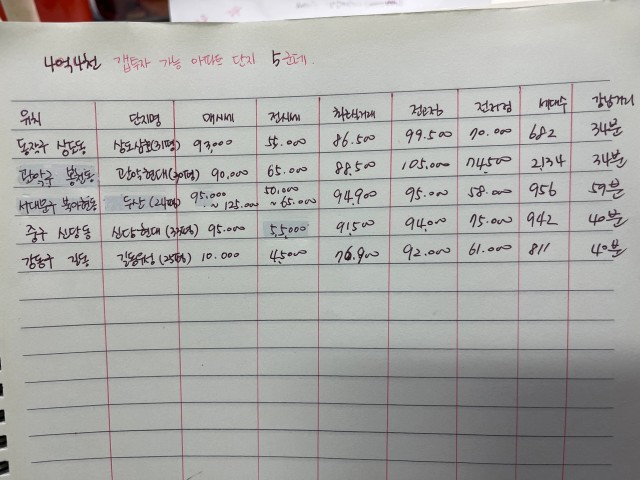 4억4천 갭투자 가능 아파트 단지 5군데.
위치 단지명 매시세 전시세 최근실거래 전고점 전저점 세대수 강남거리
동작구 상도동 상도삼호(31평) 93,000 55.000 86.500 99.500 70.000 682 34분
관악구 봉천동 관악현대(30평) 90,000 65.000 88,500 105,000 74,500 2,134 34분
서대문구 북아현동 두산(24평) 95.000 ~125.000 50,000 ~65.000 94,900 95.000 58.000 956 59분
중구 신당동 신당현대(33평) 95.000 55,000 91500 94,000 75.000 942 40분
강동구 길동 길동우성(25평) 10.000 45000 76.900 92.000 61.000 811 40분